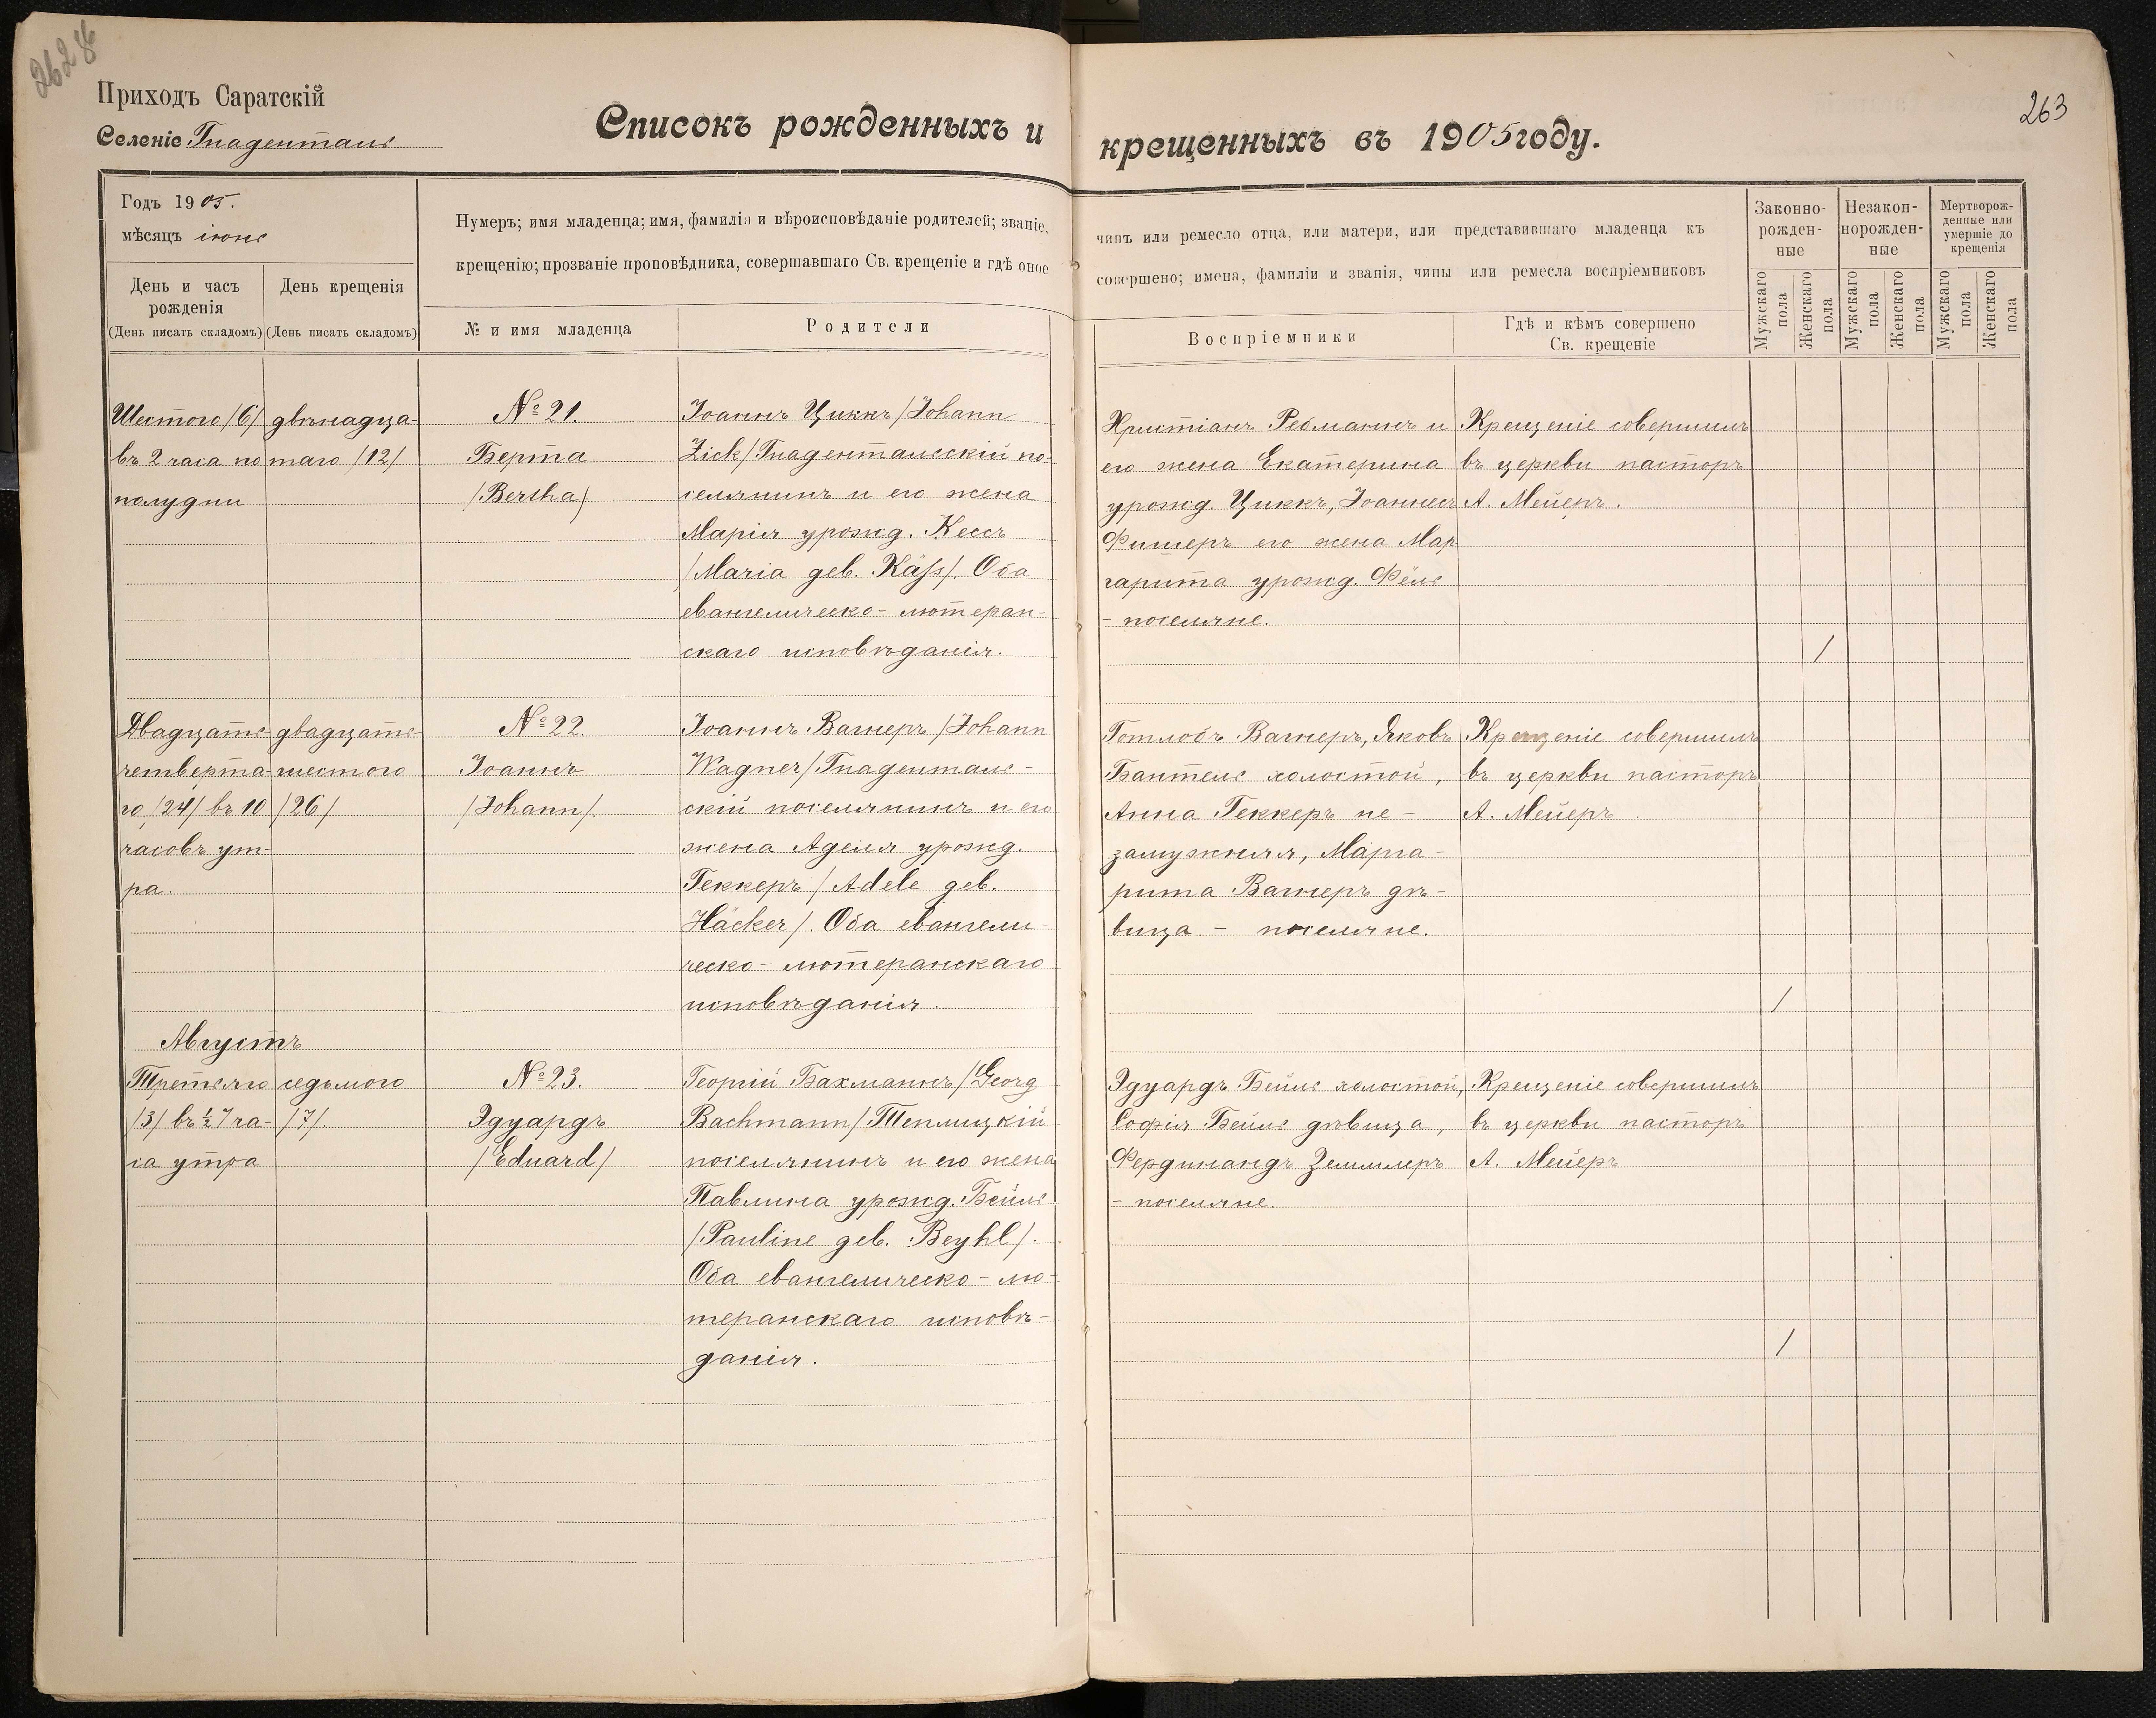 262 об
263
Приходъ Саратскій
Селеніе Гнаденталь
Списокъ рожденныхъ и крещенныхъ въ 1905 году.
Годъ 1905.
мѣсяцъ
День и часъ рожденія
(День писать складомъ)
День крещенія
(День писать складомъ)
Нумеръ; имя младенца; имя, фамилія и вѣроисповѣданіе родителей; званіе,
чинъ или ремесло отца, или матери, или представившаго младенца къ
крещенію; прозваніе проповѣдника, совершавшаго Св. крещеніе и гдѣ оное
совершено; имена, фамиліи и званія, чины или ремесла воспріемниковъ
№ и имя младенца
Родители
Воспріемники
Гдѣ и кѣмъ совершено
Св. крещеніе
Законно-
рожден-
ные
Незакон-
норожден-
ные
Мертворож-
денные или
умершіе до
крещенія
Мужскаго пола
Женскаго пола
Мужскаго пола
Женскаго пола
Мужскаго пола
Женскаго пола
Шестого /6/
въ 2 часа по
полудни
двѣнадца-
таго /12/
№ 21.
Берта
/Bertha/
Іоаннъ Циккъ /Johann
Zick/ Гнадентальскій по-
селянинъ и его жена
Марія урожд. Кессъ
/Maria geb. Käss/. Оба
евангелическо-лютеран-
скаго исповѣданія.
Христіанъ Редманнъ и
его жена Екатерина
урожд. Циккъ, Іоаннесъ
Фишеръ его жена Мар
гарита урожд. Фёль
- поселяне.
Крещеніе совершилъ
въ церкви пасторъ
А. Мейеръ.
/
Двадцать
четверта-
го /24/ въ 10
часовъ ут-
ра.
двадцать
шестого
/26/
№ 22.
Іоаннъ
/Johann/.
Іоаннъ Вагнеръ /Johann
Wagner/ Гнаденталь-
скій поселянинъ и его
жена Аделя урожд.
Геккеръ /Adele geb.
Häcker/. Оба евангели-
ческо-лютеранскаго
исповѣданія.
Готлобъ Вагнеръ, Яковъ
Бантель холостой,
Анна Геккеръ не-
замужняя, Марга-
рита Вагнеръ дѣ-
вица - поселяне.
Крещеніе совершилъ
въ церкви пасторъ
А. Мейеръ.
/
Августъ
Третьяго
/3/ въ ½ 7 ча-
са утра
седьмого
/7/.
№ 23.
Эдуардъ
/Eduard/
Георгій Бахманнъ /Georg
Bachmann/ Теплицкій
поселянинъ и его жена
Павлина урожд. Бейль
/Pauline geb. Beyhl/.
Оба евангелическо-лю-
теранскаго исповѣ-
данія.
Эдуардъ Бейль холостой,
Софія Бейль дѣвица,
Фердинандъ Земмлеръ
- поселяне.
Крещеніе совершилъ
въ церкви пасторъ
А. Мейеръ
/